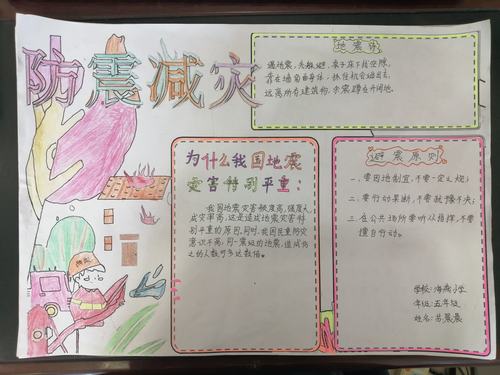 防震减灾
地震时
遇地震,先躲避,桌子床下找空隙,
靠在墙角曲身体,抓住机会逃出去,
远离所有建筑物,余震蹲在开阔地。
为什么我国地震
灾害特别严重:
我国地震灾害频度高,强度大,
成灾率高,这是造成地震灾害特
别严重的原因,同时,我国民众防灾
意识不高,同一震级的地震,造成伤
亡的人数可多达数倍。
避震原则
一、要因地制宜,不要一定之规;
二、要行动果断,不要犹豫不决;
三、在公共场所要听从指挥,不要
擅自行动。
学校:海燕小学
年级:五年级
姓名:晨晨